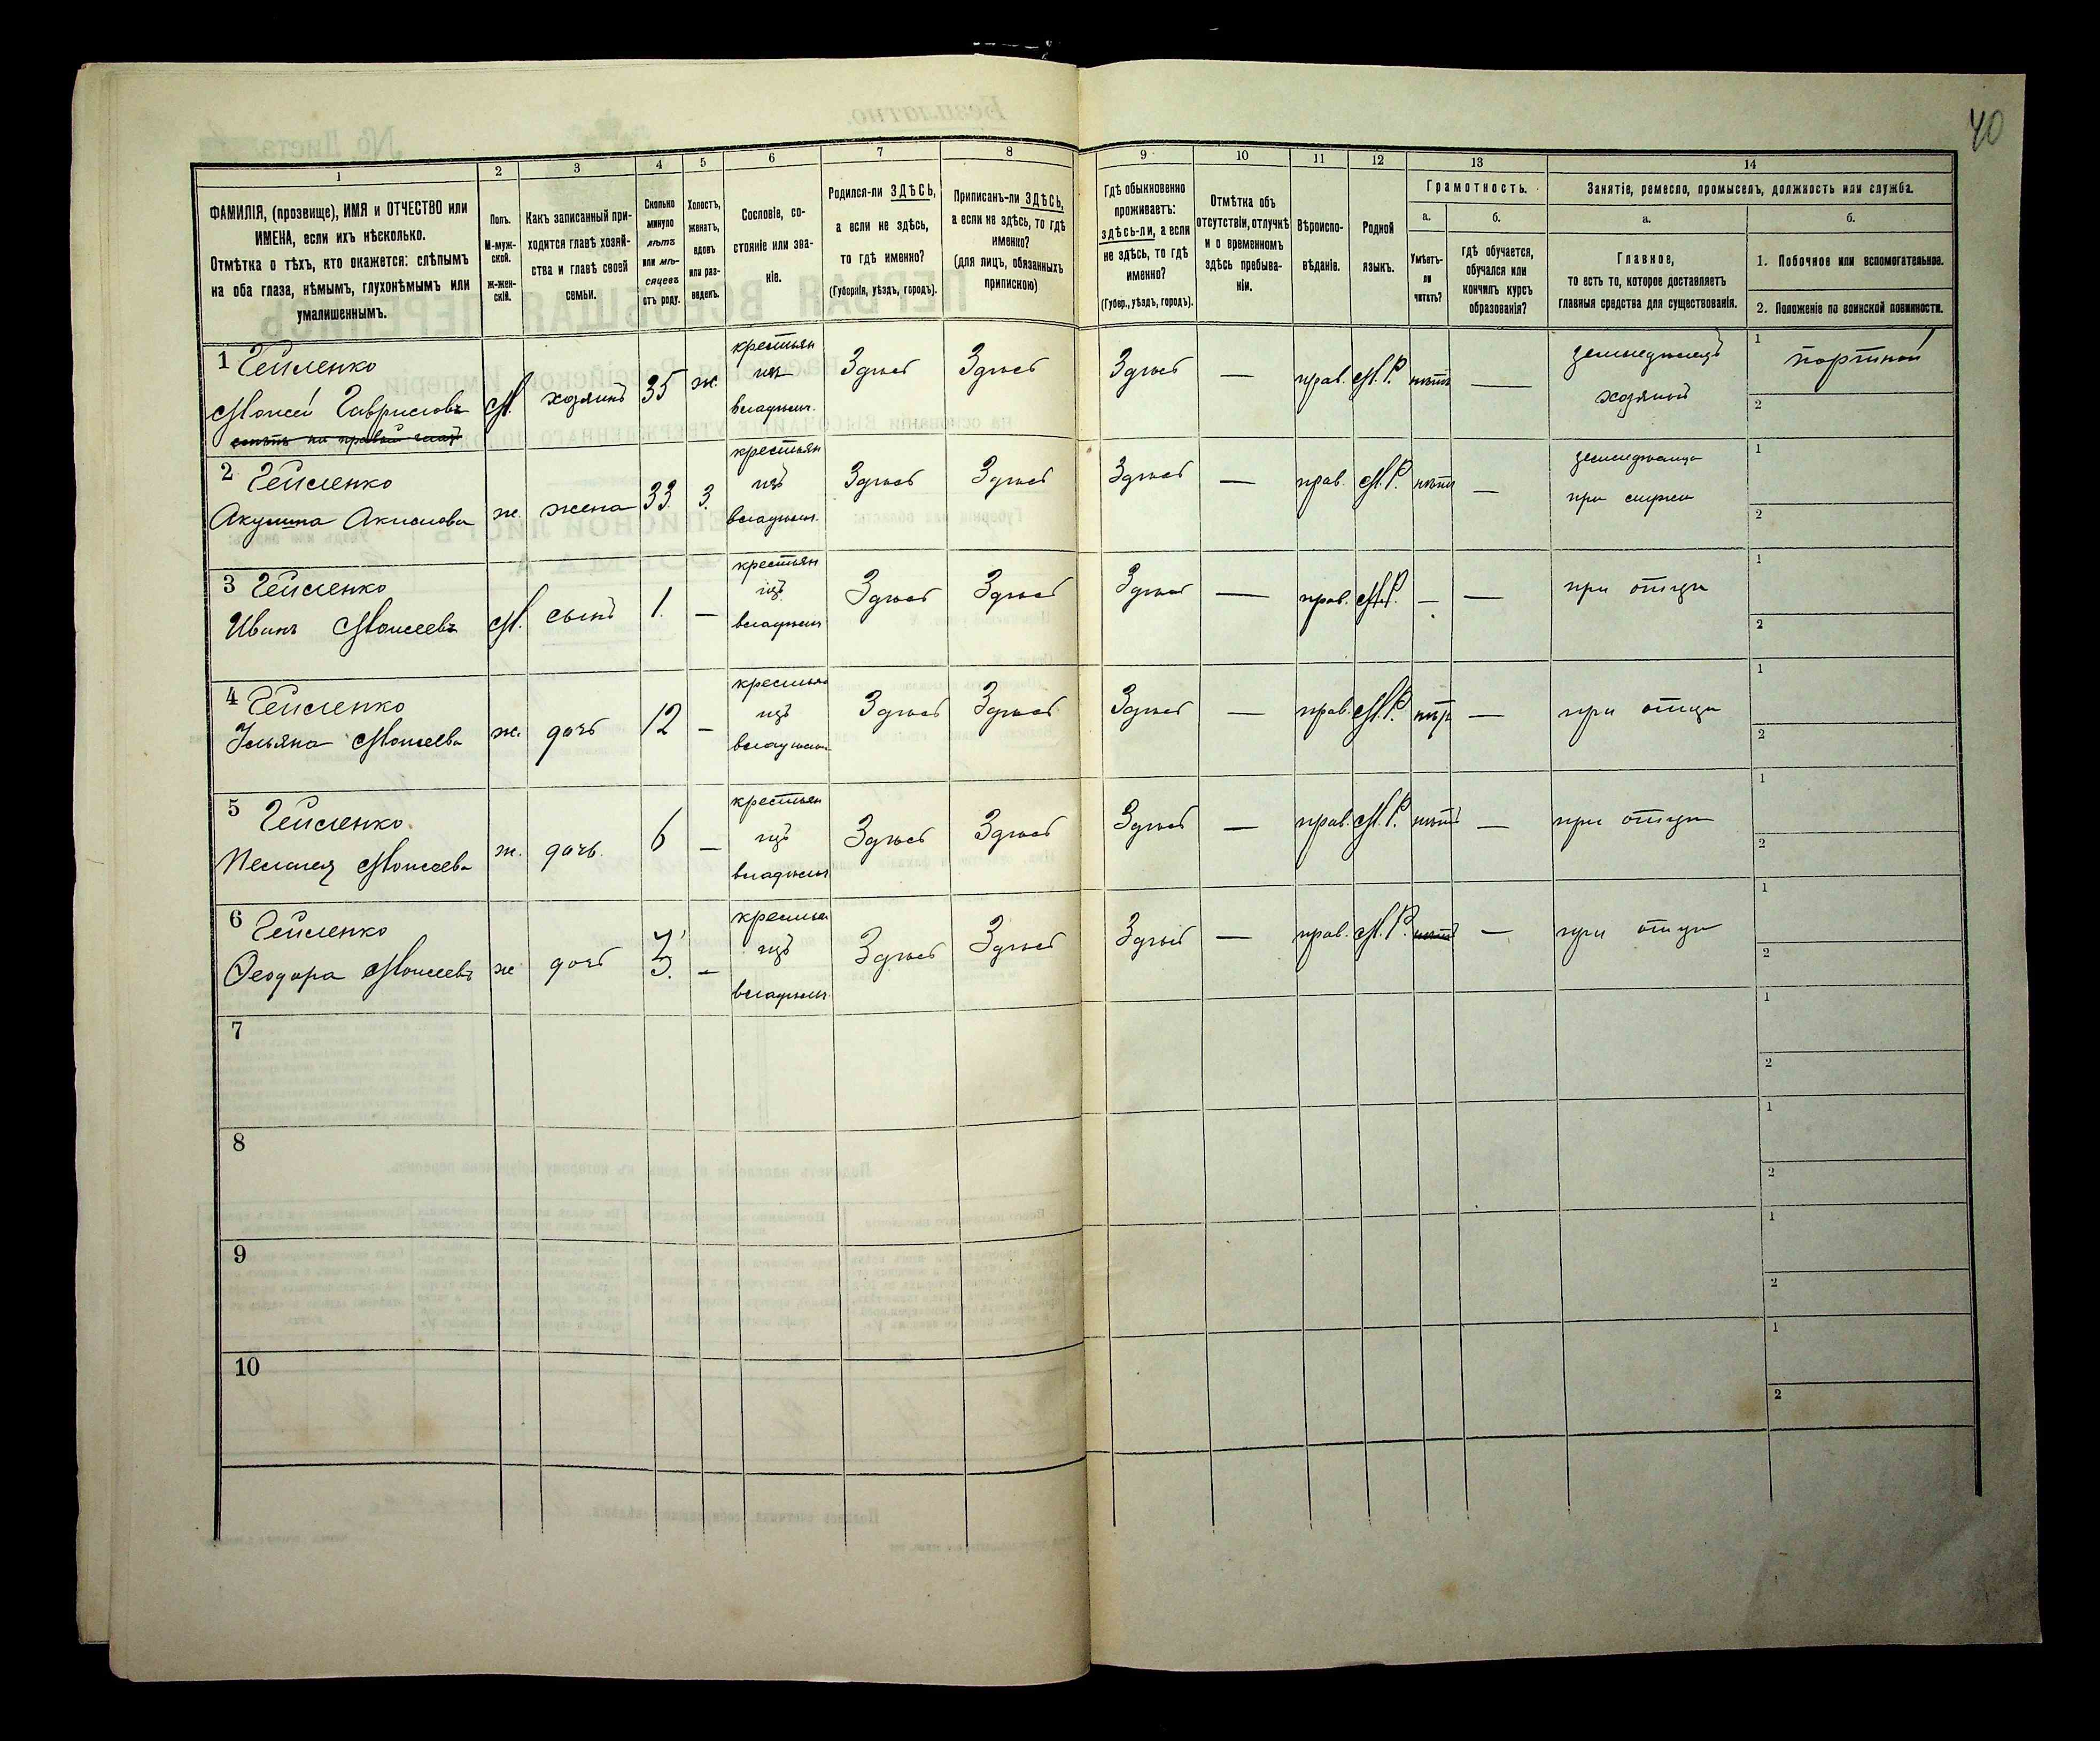 40
1
2
3
4
5
6
7
8
9
10
11
12
13
14
ФАМИЛІЯ, (прозвище), ИМЯ и ОТЧЕСТВО или
ИМЕНА, если ихъ нѣсколько.
Отмѣтка о тѣхъ, кто окажется: слѣпымъ
на оба глаза, нѣмымъ, глухонѣмымъ или
умалишеннымъ.
Полъ.
М-муж-
ской.
ж-жен-
скій.
Какъ записанный при-
ходится главѣ хозяй-
ства и главѣ своей
семьи.
Сколько
минуло
лѣтъ
или мѣ-
сяцевъ
отъ роду.
Холостъ,
женатъ,
вдовъ
или раз-
веденъ.
Сословіе, со-
стояніе или зва-
ніе.
Родился-ли ЗДѢСЬ,
а если не здѣсь,
то гдѣ именно?
(Губернія, уѣздъ, городъ).
Приписанъ-ли ЗДѢСЬ,
а если не здѣсь, то гдѣ
именно?
(для лицъ, обязанныхъ
припискою)
Гдѣ обыкновенно
проживаетъ:
здѣсь-ли, а если
не здѣсь, то гдѣ
именно?
(Губер., уѣздъ, городъ).
Отмѣтка объ
отсутствіи, отлучкѣ
и о временномъ
здѣсь пребыва-
ніи.
Вѣроиспо-
вѣданіе.
Родной
языкъ.
Грамотность.
а.
Умѣетъ-
ли
читать?
б.
гдѣ обучается,
обучался или
кончилъ курсъ
образованія?
Занятіе, ремесло, промыселъ, должность или служба.
а.
Главное,
то есть то, которое доставляетъ
главныя средства для существованія.
б.
1. Побочное или вспомогательное.
2. Положеніе по воинской повинности.
1
Моисей Гавриловъ
М. хозяинъ 35 ж.
крестьян
изъ
владѣльч.
Здѣсь Здѣсь Здѣсь — прав. М.Р. нѣтъ —
земледѣлецъ
хозяинъ
1 портной
2
2
Акулина Акимова
ж. жена 33. З.
крестьян
изъ
владѣльч.
Здѣсь Здѣсь Здѣсь — прав. М.Р. нѣтъ —
при мужѣ
1
2
3
Иванъ Моисеевъ
М. сынъ 1. —
крестьян
изъ
владѣльч
Здѣсь Здѣсь Здѣсь — прав. М.Р. — — при отцѣ
1
2
4
Ульяна Моисеева
ж. дочь 12 —
крестьян
изъ
владѣльч
Здѣсь Здѣсь Здѣсь — прав. М.Р. нѣтъ — при отцѣ
1
2
5
Пелагея Моисеева
ж. дочь. 6 —
крестьян
изъ
владѣльч
Здѣсь Здѣсь Здѣсь — прав. М.Р. нѣтъ — при отцѣ
1
2
6
Ѳеодора Моисеева
ж дочь 3. —
крестьян
изъ
владѣльч.
Здѣсь Здѣсь Здѣсь — прав. М.Р. нѣтъ — при отцѣ
1
2
7
1
2
8
1
2
9
1
2
10
1
2